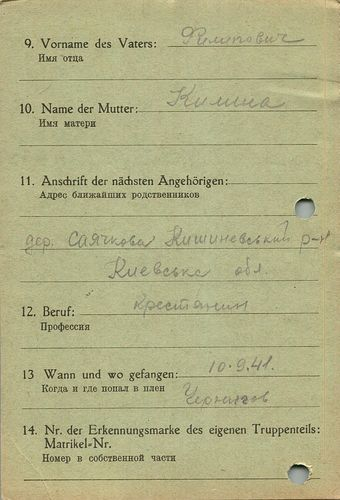 9. Vorname des Vaters: Филипович
Имя отца
10. Name der Mutter: Килина
Имя матери
11. Anschrift der nächsten Angehörigen:
Адрес ближайших родственников
дер. Саячкова Кишиневський р-н
Киевська обл.
12. Beruf: крестянин
Профессия
13 Wann und wo gefangen: 10.9.41.
Когда и где попал в плен Чернигов
14. Nr. der Erkennungsmarke des eigenen Truppenteils:
Matrikel-Nr.
Номер в собственной части